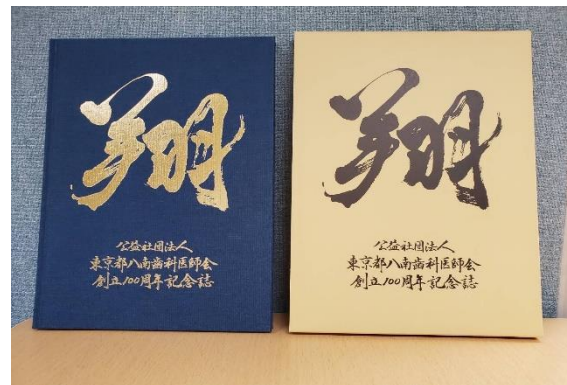 翔
公益社団法人
東京都八南歯科医師会
創立100周年記念誌
翔
公益社団法人
東京都八南歯科医師会
創立100周年記念誌